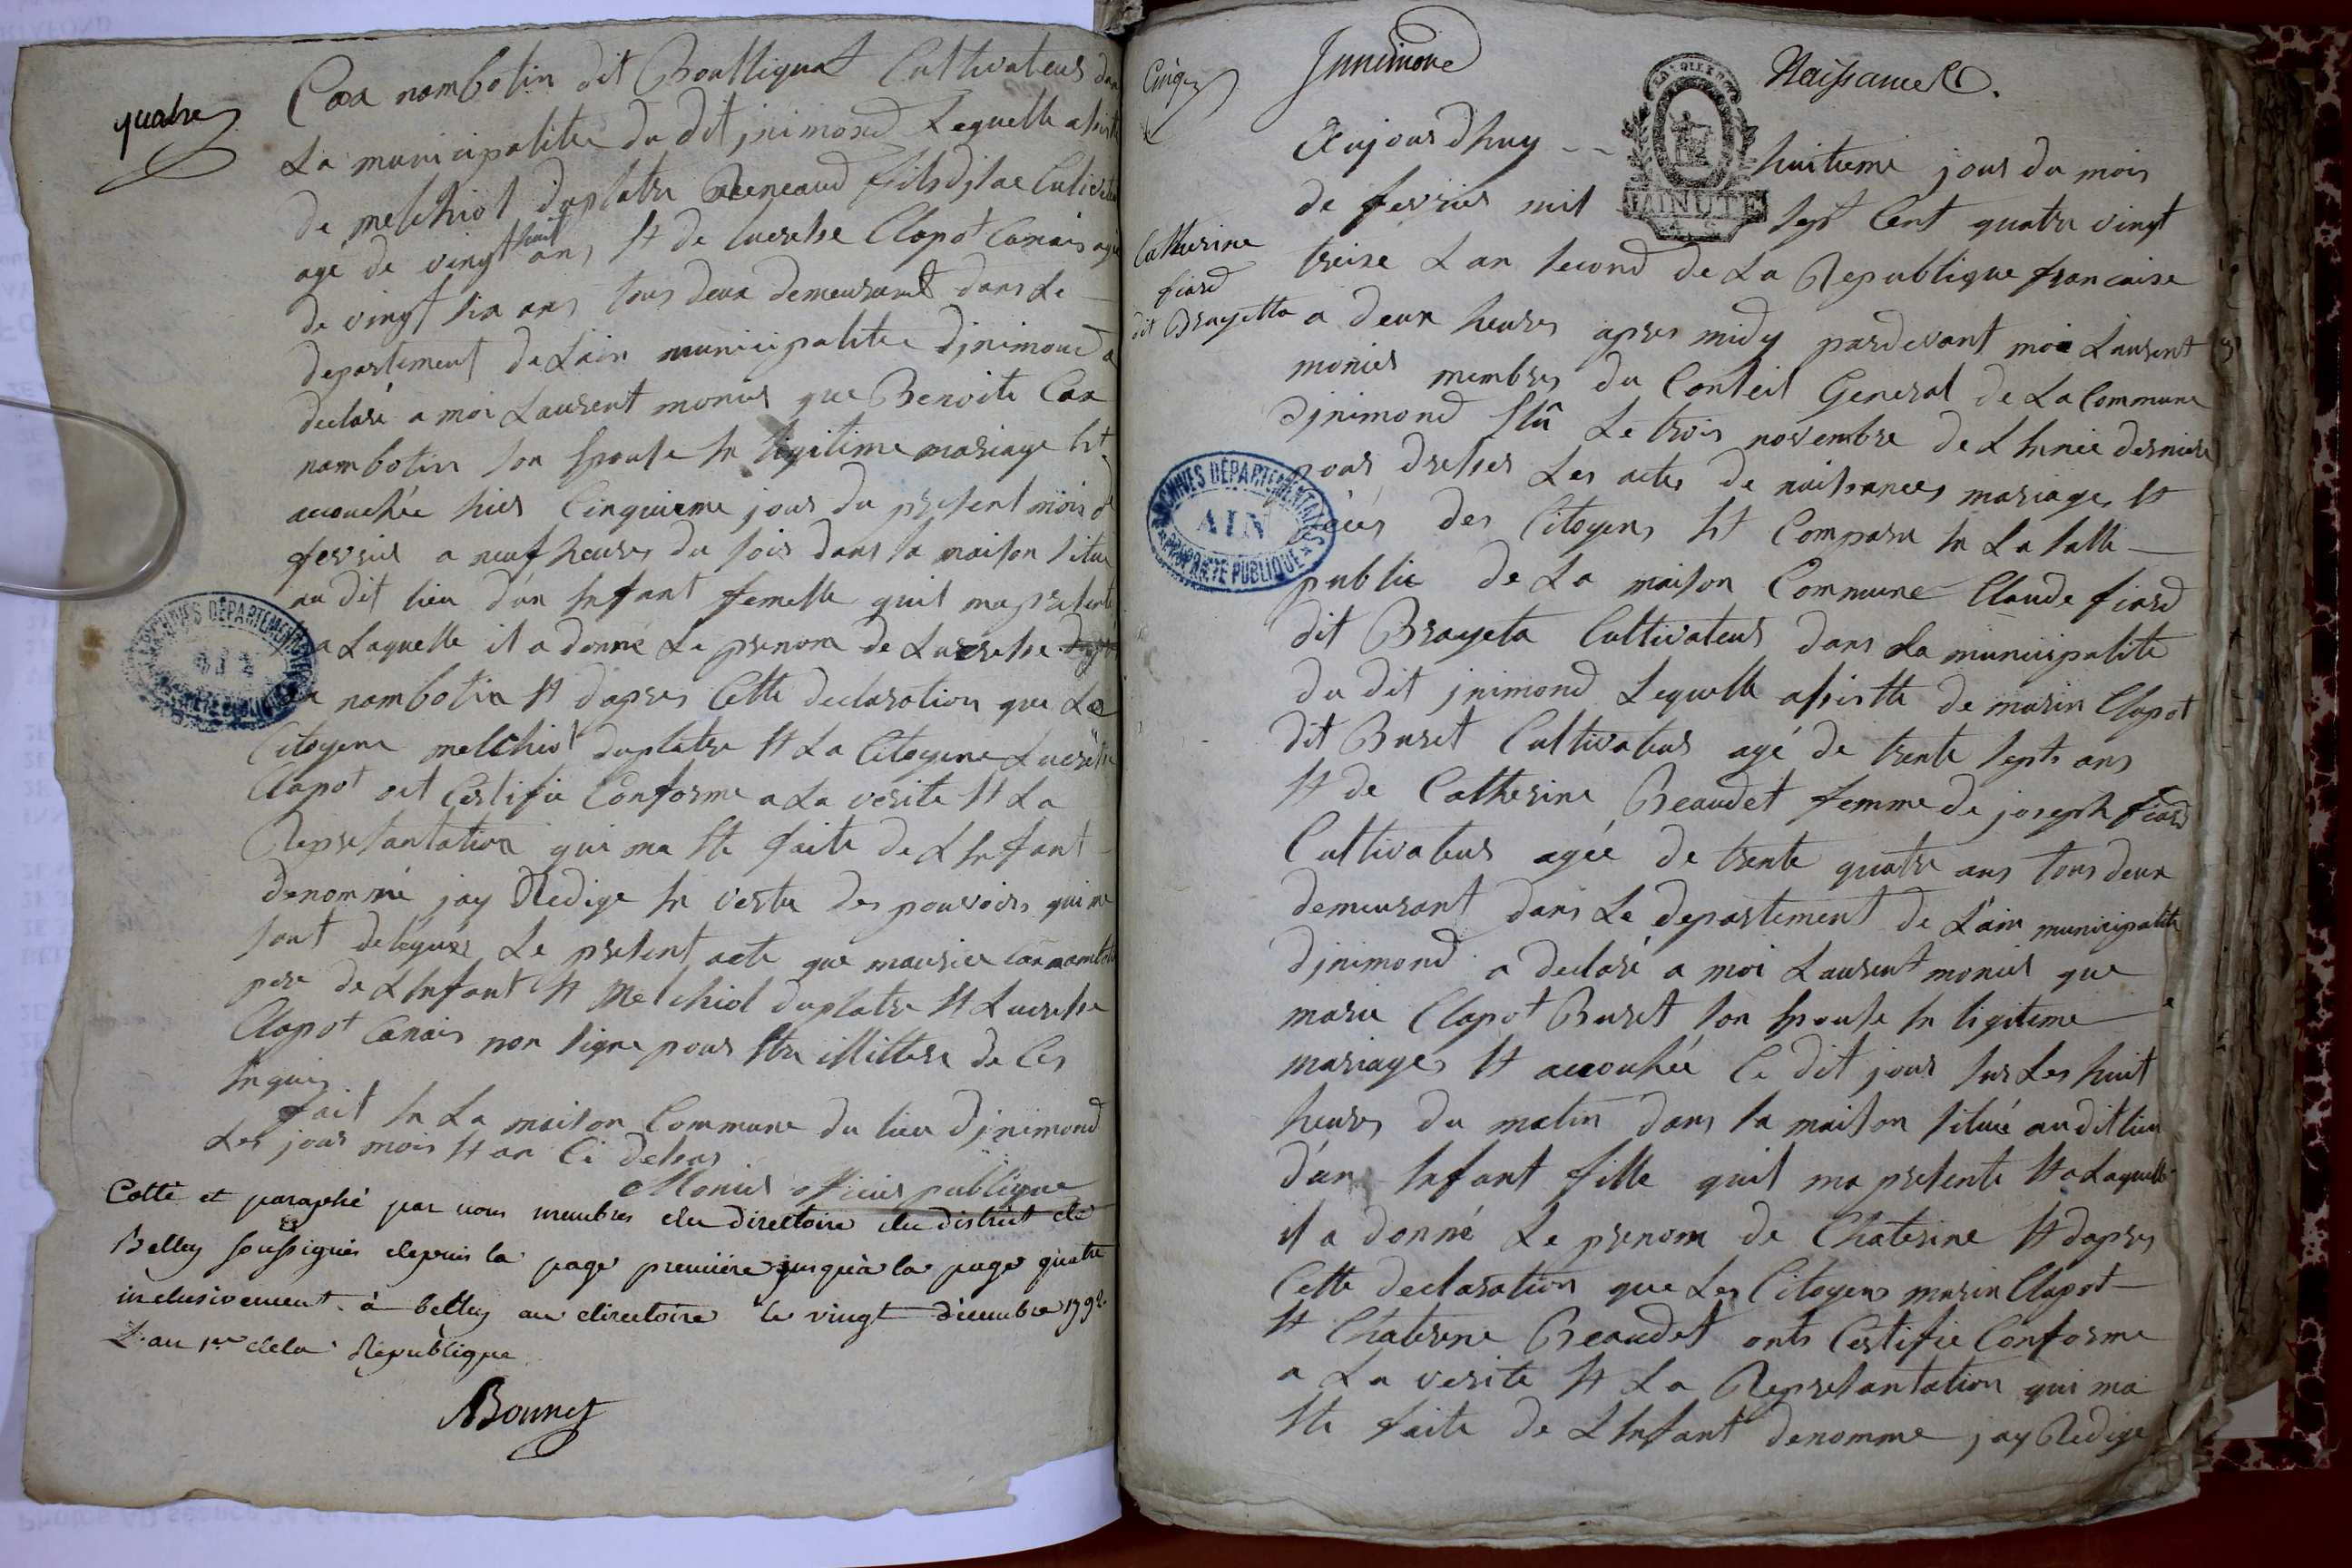 quatre
Cax nambotin dit Boulliquat Cultivateur dans
La municipalitee du dit jnimond Lequelle assiste
de melchiol duplatre Reneaud fils disac Cultivateur
agé de vingt huit ans Et de lucresse Clapot Canais agée
de vingt six ans tous deux demeurant dans Le
departement de Lain municipalitee djnimond a
declaré a moi Laurent monier que Benoite Cax
nambotin son Epouse En legitime mariage Est
accouchée hier Cinquieme jour du present mois de
fevrier a neuf heures du soir dans sa maison situe
au dit lieu d'un Enfant femelle quil ma presente
a Laquelle il a donné Le prenom de Lucresse
nambotin Et dapres Cette declaration que Le
Citoyens melchiot duplatre Et La Citoyene Lucresse
Clapot ont Certifie Conforme a La verite Et La
Represantation qui ma Ete faite de L Enfant
denommé jay Redige En vertu des pouvoirs qui me
sont delegues Le present acte que maurice Cax nambotin
per de L Enfant Et Melchiol duplatre Et Lucresse
Clapot Canais non signe pour Etre illittere de Ces
Enquis
fait En La maison Commune du lieu Djnimond
Les jour mois Et an Ci desus
Monier officier publique
Cotté et paraphé par nous membres du directoire du district de
Belley soussignés depuis la page premiere jusqu'à la page quatre
inclusivement à belley au directoire le vingt décembre 1792
L'an 1er de la République
Bonnet
Cinq
Innimond
Naissances
Catherine
fiard
dit Brayetta
MINUTE
Aujourdhuy - - huitieme jour du mois
de fevrier mil sept Cent quatre vingt
treise L an second de La Republique francaise
a deux heures apres midy pardevant moi Laurent
monier membres du Conseil General de La Commune
djnimond Elû Le trois novembre de L Ennée derniere
pour dresser Les actes de naissances mariages Et
déces des Citoyens Et Comparu En La salle
public de La maison Commune Claude fiard
dit Brayeta Cultivateur dans La municipalite
du dit jnimond Lequelle assistte de marin Clapot
dit Buret Cultivateur agé de trente septs ans
Et de Catherine Beaudet femme de joseph fiard
Cultivateur agée de trente quatre ans tous deux
demeurant dans Le departement de L'ain municipalite
Djnimond a declaré a moi Laurent monier que
marie Clapot Buret son Epouse En ligitime
mariages Et accouhée Ce dit jour sur Les huit
heures du matin dans sa maison située au dit lieu
d'un Enfant fille quil ma presente Et a Laquelle
il a donné Le prenom de Chaterine Et dapres
Cette declaration que Les Citoyens marin Clapot
Et Chaterine Beaudet onts Certifie Conforme
a La verite Et La Represantation qui ma
Ete faite de L Enfant denomme jay Redige
ARCHIVES DÉPARTEMENTALES
AIN
PROPRIÉTÉ PUBLIQUE